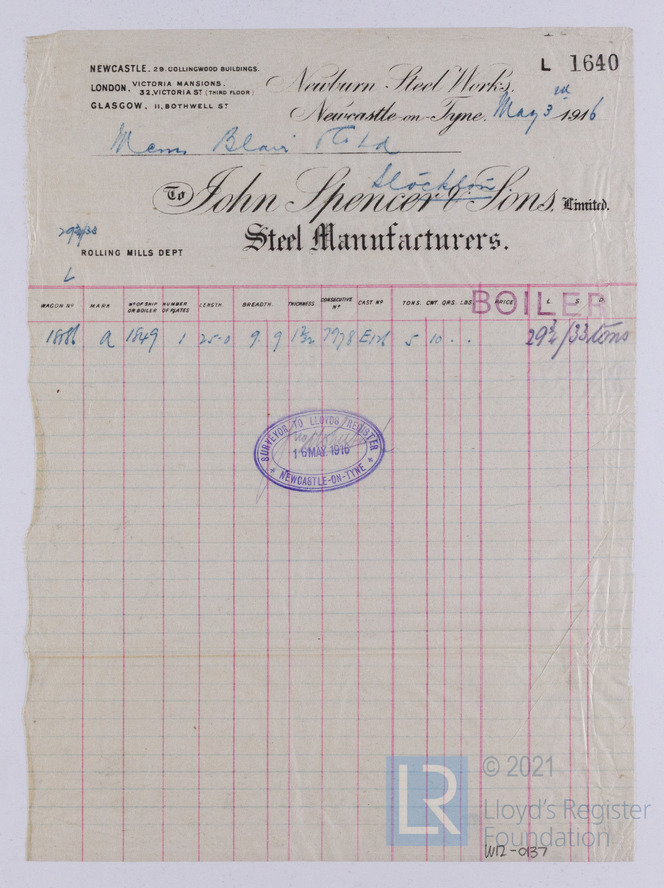 L 1640
NEWCASTLE. 29. COLLINGWOOD BUILDINGS.
LONDON. VICTORIA MANSIONS.
32, VICTORIA ST (THIRD FLOOR)
GLASGOW. 11, BOTHWELL ST
Newburn Steel Works.
Newcastle-on-Tyne. May 3rd 1916
Messrs Blair & Co Ld
Stockton
To John Spencer & Sons, Limited.
Steel Manufacturers.
29¾/33
ROLLING MILLS DEPT
L
BOILER
WAGON No MARK No OF SHIP OR BOILER NUMBER OF PLATES LENGTH. BREADTH. THICKNESS CONSECUTIVE No CAST No TONS. CWT. QRS. LBS. PRICE. L. S. D.
a 1849 1 25.0 9. 9 7978 5 10 . . 29¾/33 tons
SURVEYOR TO LLOYDS REGISTER
16 MAY. 1916
NEWCASTLE-ON-TYNE
LR
© 2021
Lloyd's Register
Foundation
W12-0137